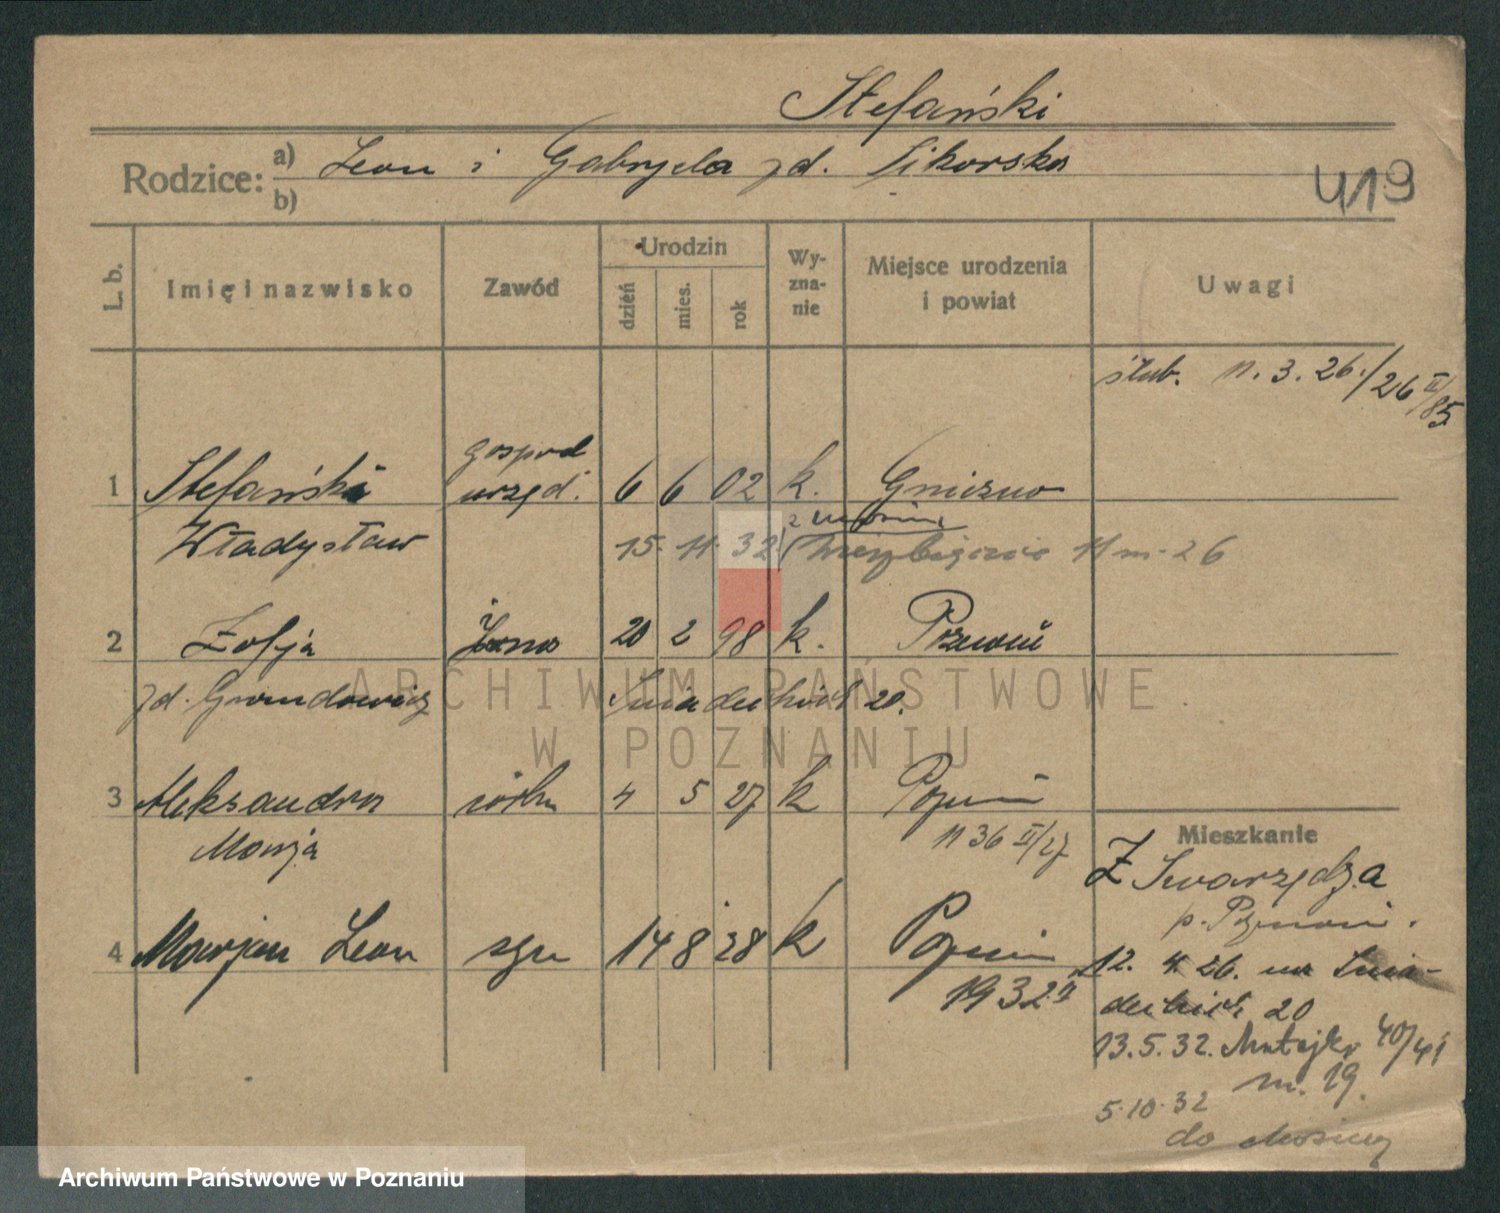 Stefański
Rodzice: a) Leon i Gabryela zd. Sikorska
b)
419
L. b.
Imię i nazwisko
Zawód
Urodzin
dzień
mies.
rok
Wy-
zna-
nie
Miejsce urodzenia
i powiat
Uwagi
ślub. 11. 3. 26./26 II/85
1 Stefański gospod urzęd. 6 6 02 k. Gniezno
Władysław 15 11 32 z Mosiny Wierzbięcice 11 m. 26
2 Zofja żona 20 2 98 k. Poznań
zd. Grondowicz Śniadeckich 20.
3 Aleksandra córka 4 5 27 k Poznań
Marja 1136 II/27
4 Marjan Leon syn 14 8 28 k Poznań
1932 II
Mieszkanie
Z Swarzędza
p. Poznań.
12. 4. 26. na Śnia-
deckich 20
13.5.32. Matejki 40/41
m. 19.
5.10.32
do Mosiny
ARCHIWUM PAŃSTWOWE
W POZNANIU
Archiwum Państwowe w Poznaniu